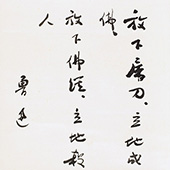 放下屠刀、立地成
佛。
放下佛經、立地殺
人
魯迅